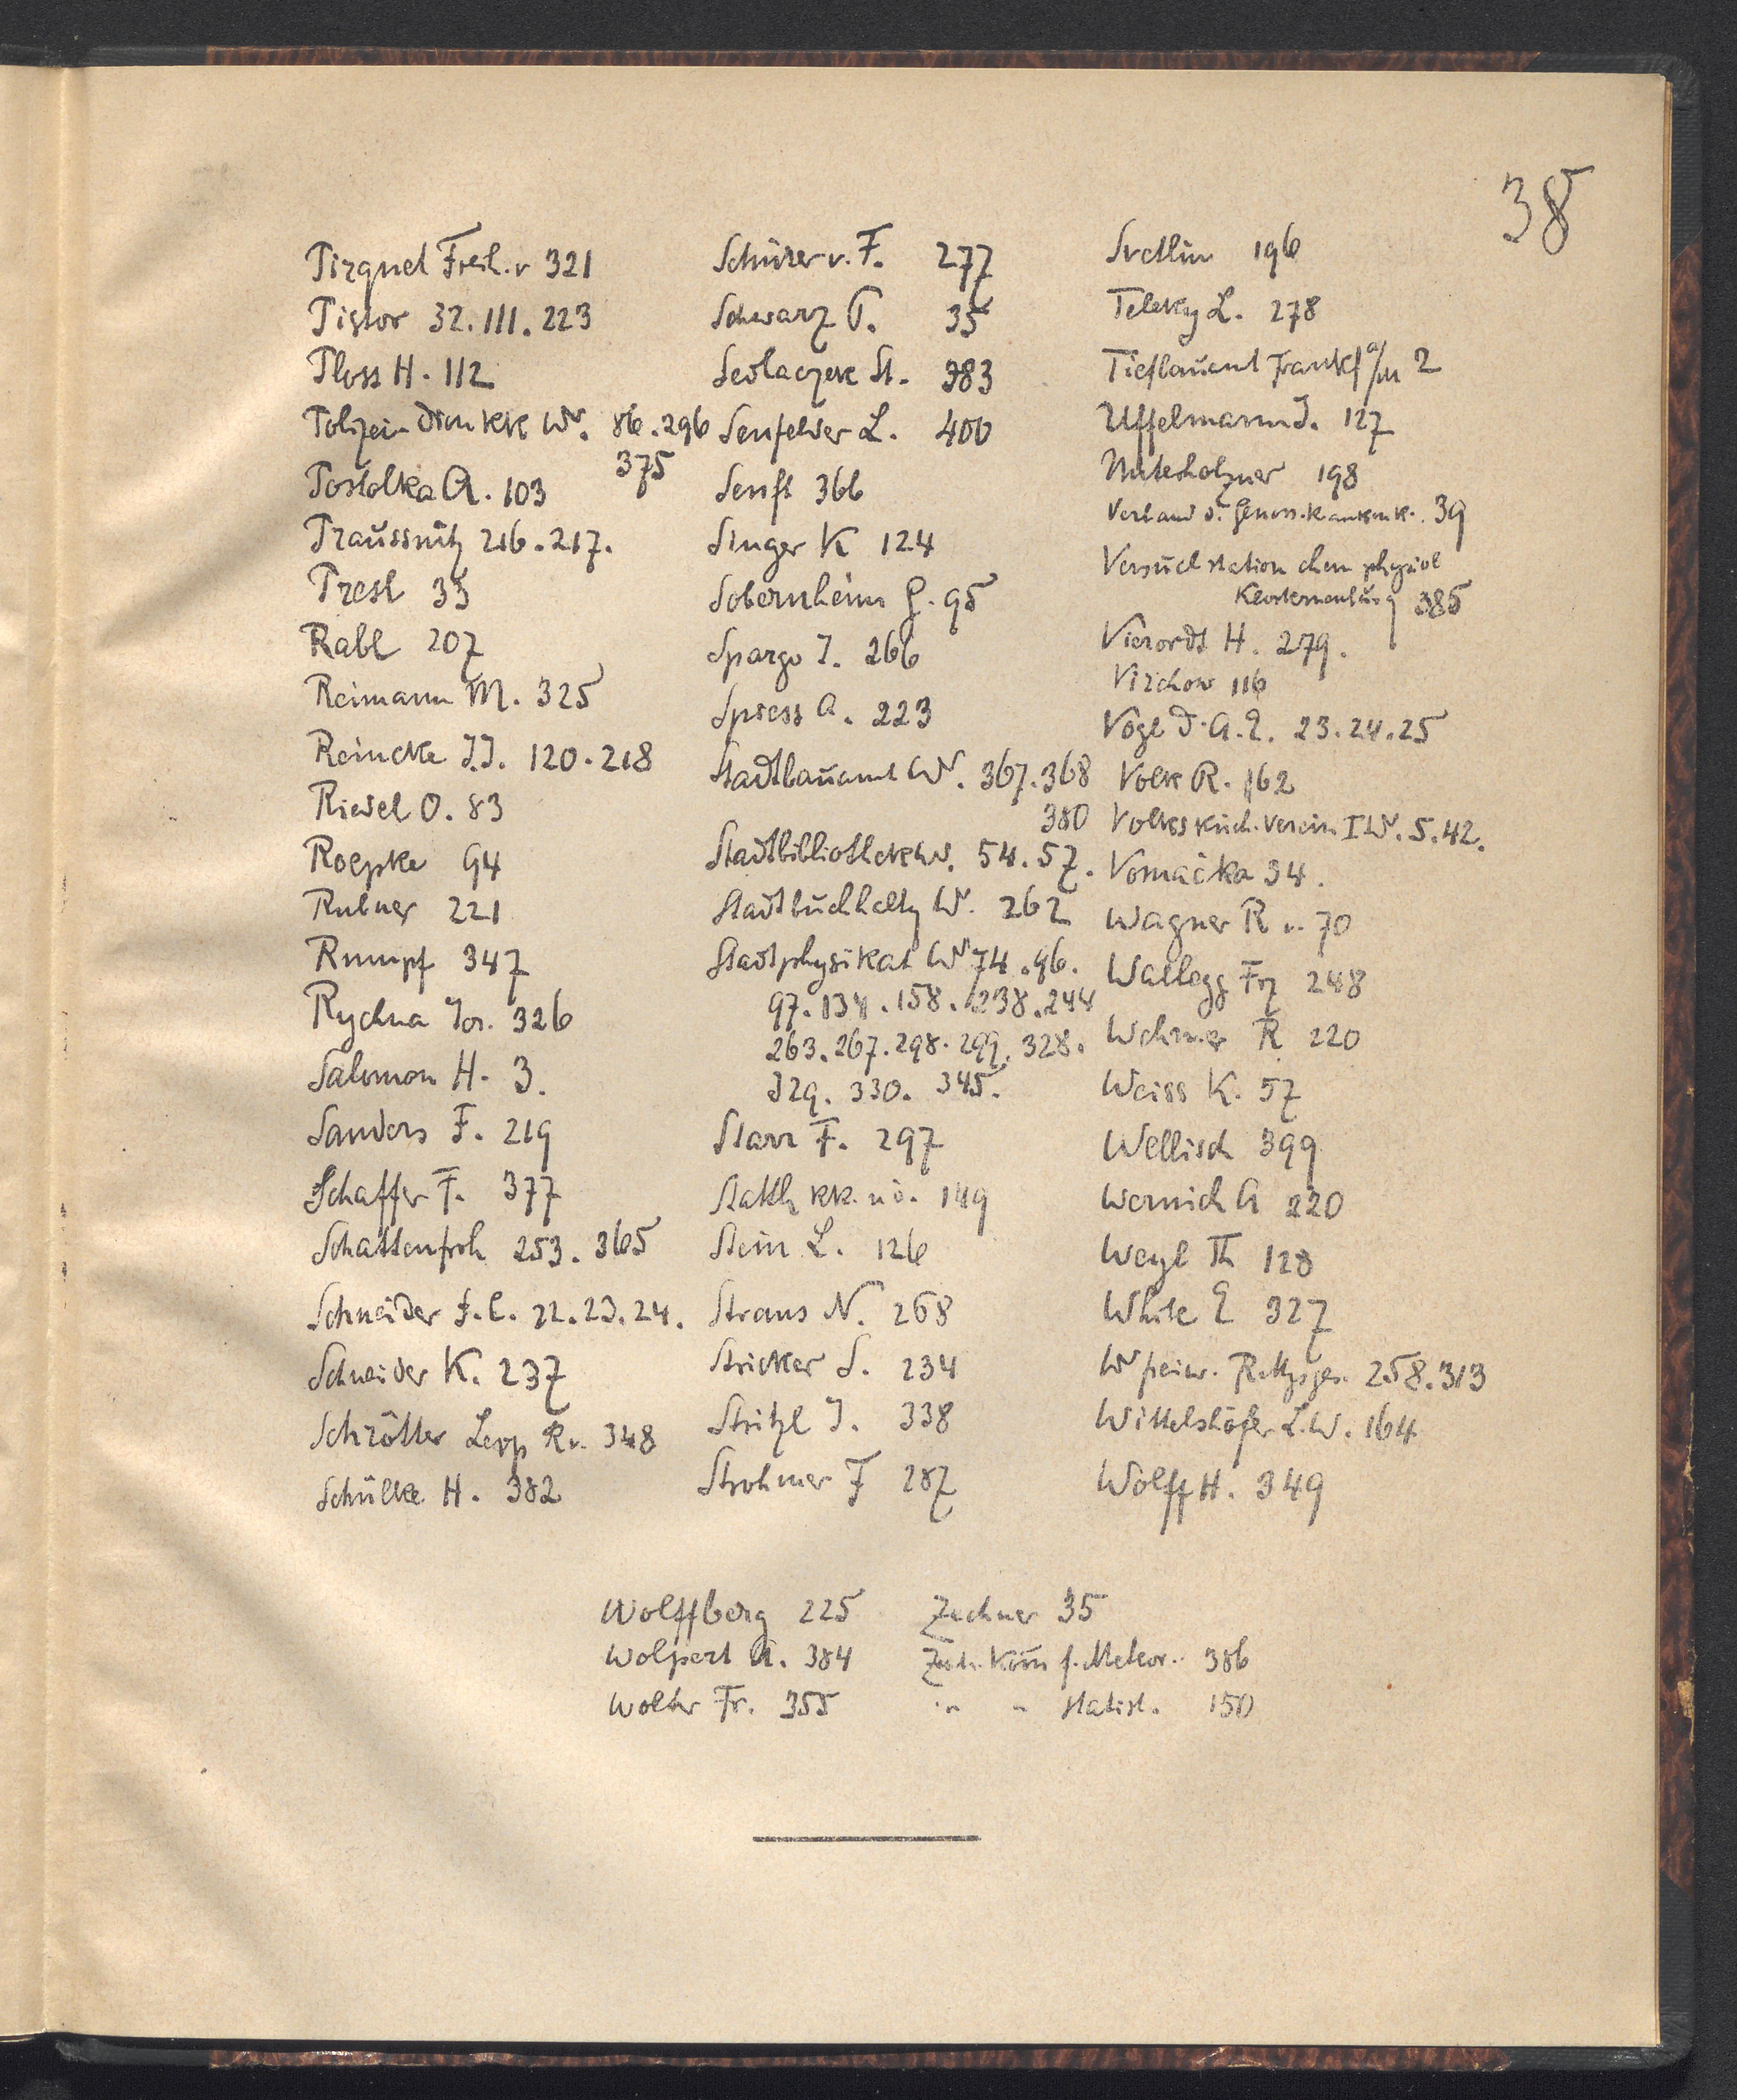 38
Pirquet Freih. v 321
Pistor 32. 111. 223
Ploss H. 112
Polizei-Dion KK W. 86. 296
375
Postolka A. 103
Praussnitz 216. 217.
Presl 35
Rabl 207
Reimann M. 325
Reincke J.J. 120. 218
Riedel O. 83
Roepke 94
Rubner 221
Rumpf 347
Rychna Jos. 326
Salomon H. 3.
Sanders F. 219
Schaffer F. 377
Schattenfroh 253. 365
Schneider F.C. 22. 23. 24.
Schneider K. 237
Schrötter Leop R v. 348
Schülke H. 382
Schürer v. F. 277
Schwarz T. 35
Sedlaczek St. 383
Senfelder L. 400
Senft 366
Singer K 124
Sobernheim G. 95
Spargo J. 266
Spiess A. 223
Stadtbauamt W. 367. 368
380
Stadtbibliothek W. 54. 57.
Stadtbuchhaltg W. 262
Stadtphysikat W 74. 96.
97. 134. 158. 238. 244
263. 267. 298. 299. 328.
329. 330. 345.
Starr F. 297
Statth KK. nö. 149
Stein L. 126
Straus N. 268
Stricker S. 234
Stritzl J. 338
Strohmer F 287
Svetlin 196
Teleky L. 278
Tiefbauamt Frankf a/M 2
Uffelmann J. 127
Unterholzner 198
Verband d. Genoss. Krankenk. 39
Versuchstation chem physiol
Klosterneuburg 385
Vierordt H. 279.
Virchow 116
Vogl D. A. E. 23. 24. 25
Volk R. 162
Volksküch. Verein I W. 5. 42.
Vomačka 34.
Wagner R v. 70
Wallegg Frz 248
Wehmer R 220
Weiss K. 57
Wellisch 399
Wernich A 220
Weyl Th 128
White E 327
W freiw. Rettgsges. 258. 313
Wittelshöfer L. W. 164
Wolff H. 349
Wolffberg 225
Wolpert A. 384
Wolter Fr. 355
Zechner 35
Komm f. Meteor. 386
" " Statist. 150